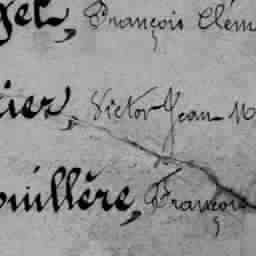 get, François Clém
tiez, Victor Jean M
ouillère, François